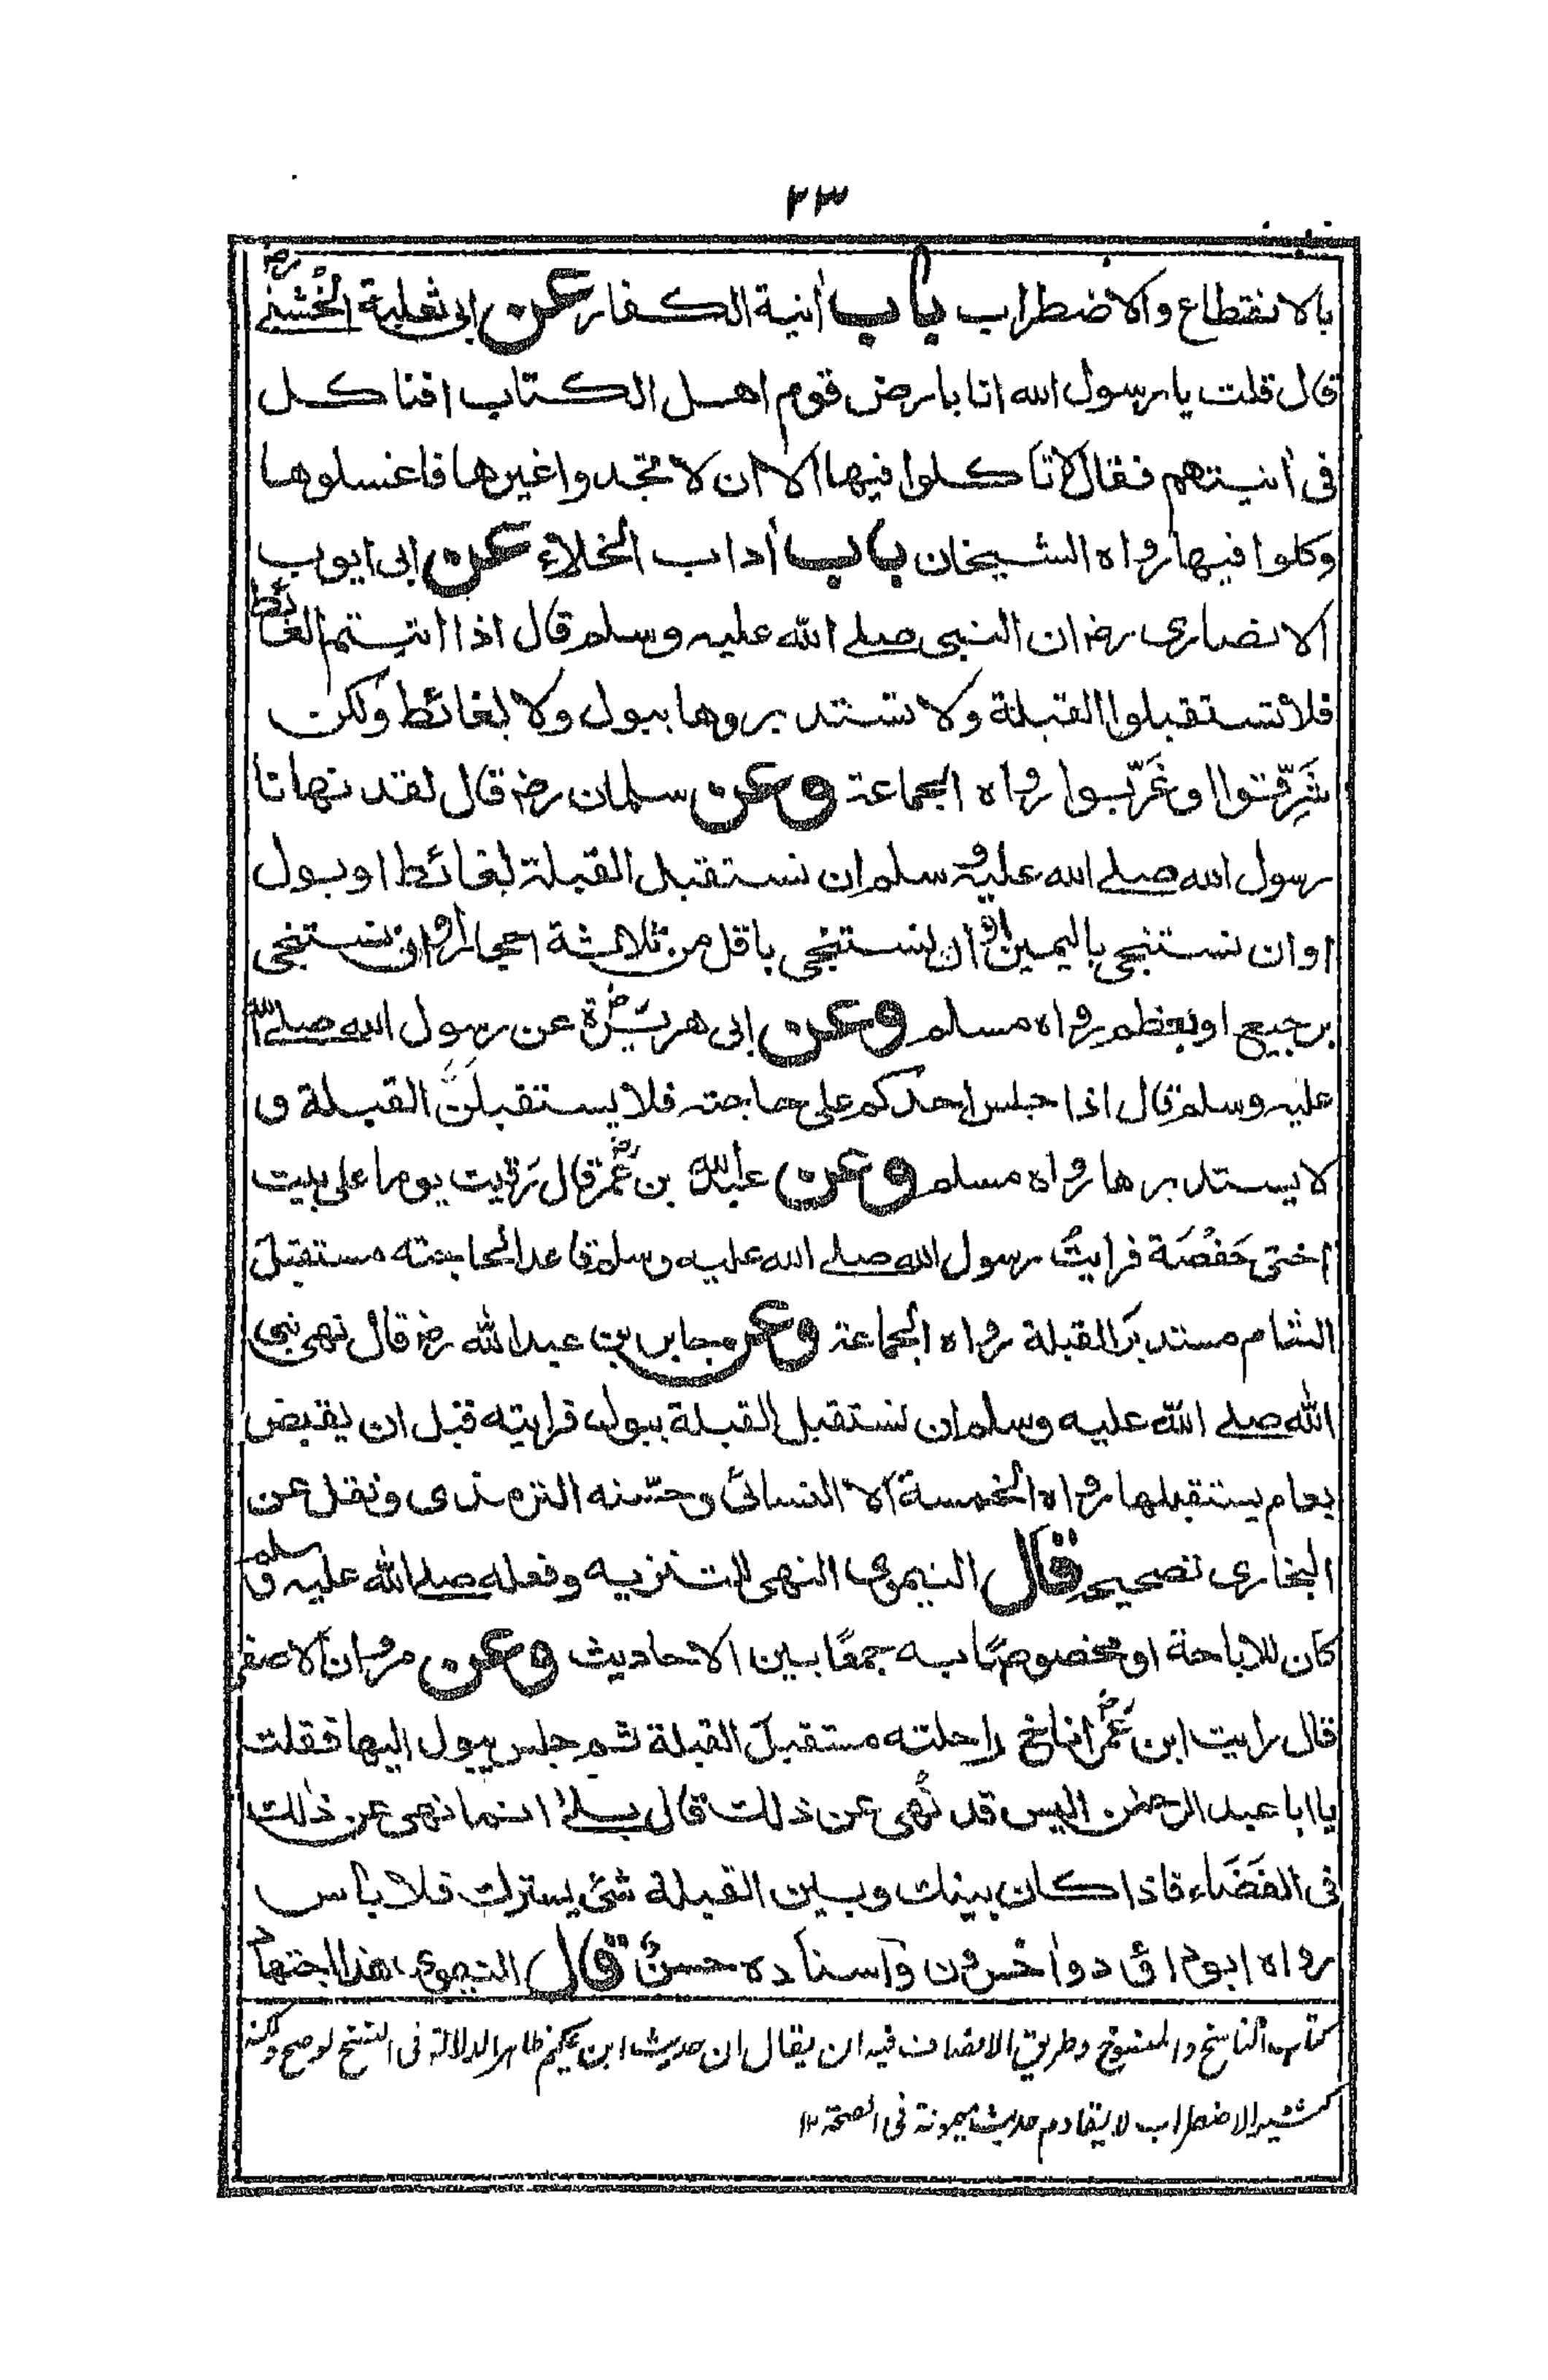 ٢٣
بالانقطاع والاضطراب باب اٰنية الكفار عن ابى ثعلبة الخُشَنِى رض
قال قلت يا رسول الله انا بارض قوم اهل الكتاب افنا كل
فى اٰنيتهم فقال لا تا كلوا فيها الا ان لا تجدوا غيرها فاغسلوها
وكلوا فيها رواه الشيخان باب اٰداب الخلاء عن ابى ايوب
الانصارى رض ان النبى صلے الله عليه وسلم قال اذا اتيتم الغائط
فلا تستقبلوا القبلة ولا تستدبروها ببول ولا بغائط ولكن
شَرِّقوا او غَرِّبوا رواه الجماعة وعن سلمان رض قال لقد نهانا
رسول الله صلے الله عليه وسلم ان نستقبل القبلة لغائط او بول
او ان نستنجى باليمين او ان نستنجى باقل من ثلاثة احجار او ان نستنجى
برجيع او بعظم رواه مسلم وعن ابى هريرة رض عن رسول الله صلے الله
عليه وسلم قال اذا جلس احدكم على حاجته فلا يستقبلنَّ القبلة و
لا يستدبرها رواه مسلم وعن عبد الله بن عُمَر رض قال رَقيت يوما على بيت
اختى حَفْصَة فرايتُ رسول الله صلے الله عليه وسلم قاعدا لحاجته مستقبلَ
الشام مستدبرَ القبلة رواه الجماعة وعن جابر بن عبد الله رض قال نهى نبى
الله صلے الله عليه وسلم ان نستقبل القبلة ببول فرايته قبل ان يقبض
بعام يستقبلها رواه الخمسة الا النسائى وحسّنه الترمذى ونقل عن
البخارى تصحيحه قال النيموى النهى للتنزيه وفعله صلے الله عليه وسلم
كان للاباحة او مخصوصًا به جمعًا بين الاحاديث وعن مروان الاصفر
قال رايت ابن عُمَر رض اناخ راحلته مستقبلَ القبلة ثم جلس يبول اليها فقلت
يا ابا عبد الرحمٰن اليس قد نُهى عن ذلك قال بلےٰ انما نهى عن ذٰلك
فى الفَضَاء فاذا كان بينك وبين القبلة شئ يسترك فلا باس
رواه ابو داؤد واٰخرون واسناده حسنٌ قال النيموى هذا اجتهاد
كتابه الناسخ والمنسوخ وطريق الانصاف فيه ان يقال ان حديث ابن عكيم ظاهر الدلالة فى النسخ لو صح ولكنه
كثير الاضطراب لا يقاوم حديث ميمونة فى الصحة ١٢